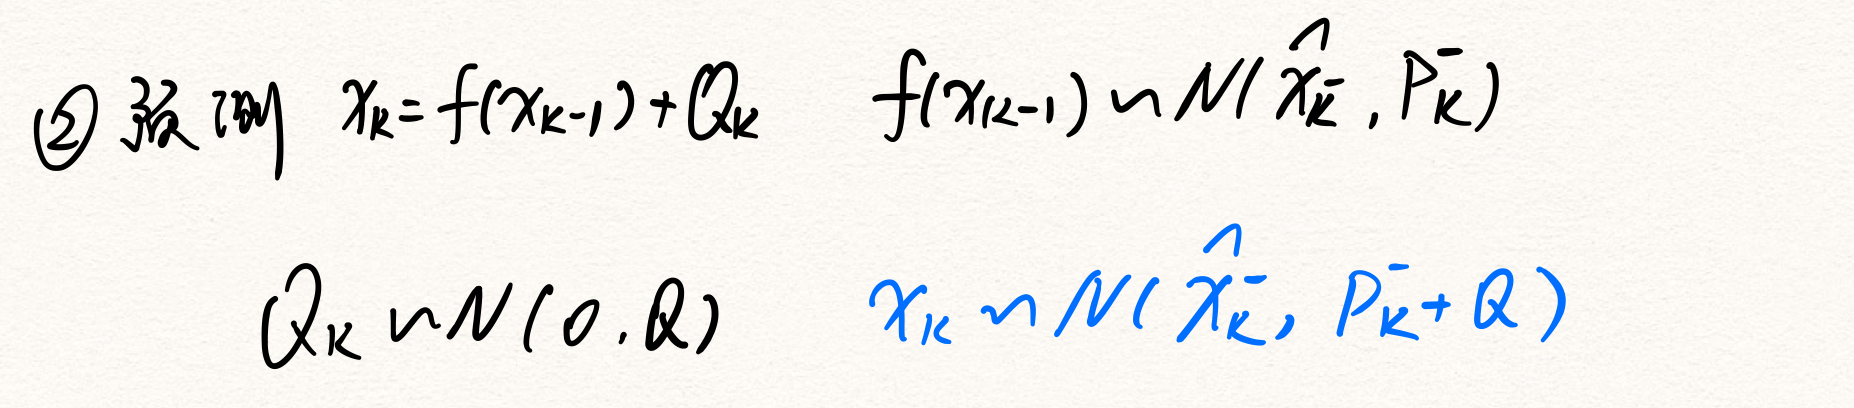 ② 预测 x_k = f(x_{k-1}) + Q_k  f(x_{k-1}) ~ N(\hat{x}_k^-, P_k^-)
Q_k ~ N(0, Q)  x_k ~ N(\hat{x}_k^-, P_k^- + Q)